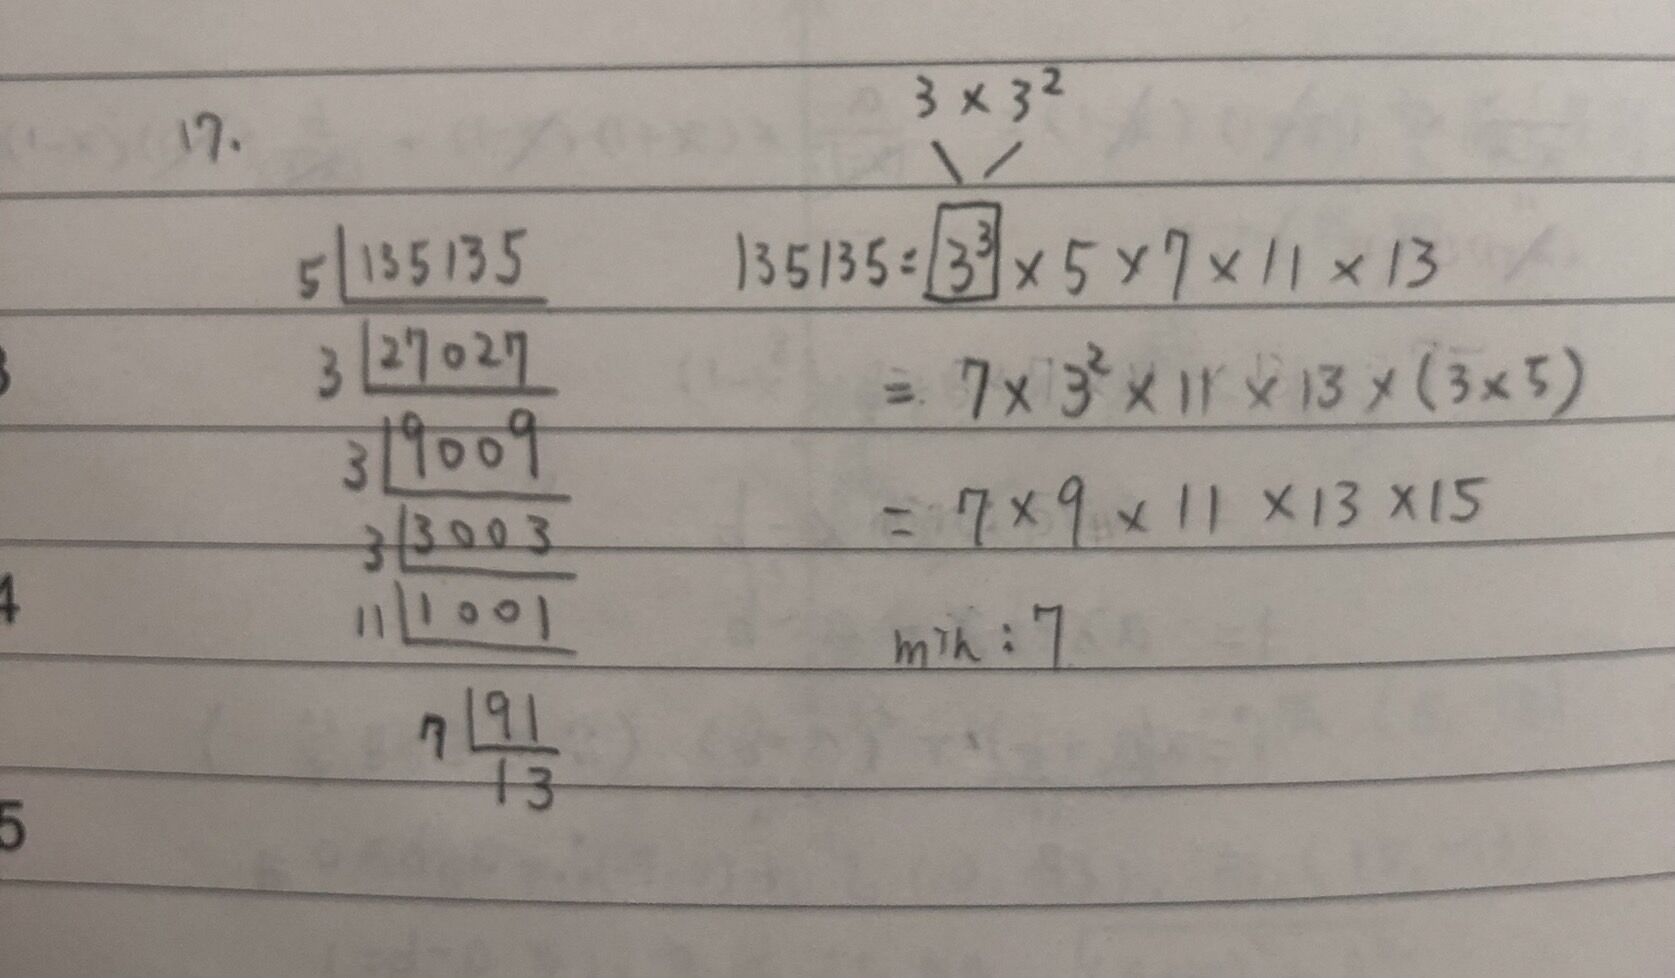 17.
5 135135
3 27027
3 9009
3 3003
11 1001
7 91
13
3 × 3²
135135 = 3³ × 5 × 7 × 11 × 13
= 7 × 3² × 11 × 13 × (3 × 5)
= 7 × 9 × 11 × 13 × 15
min : 7
4
5